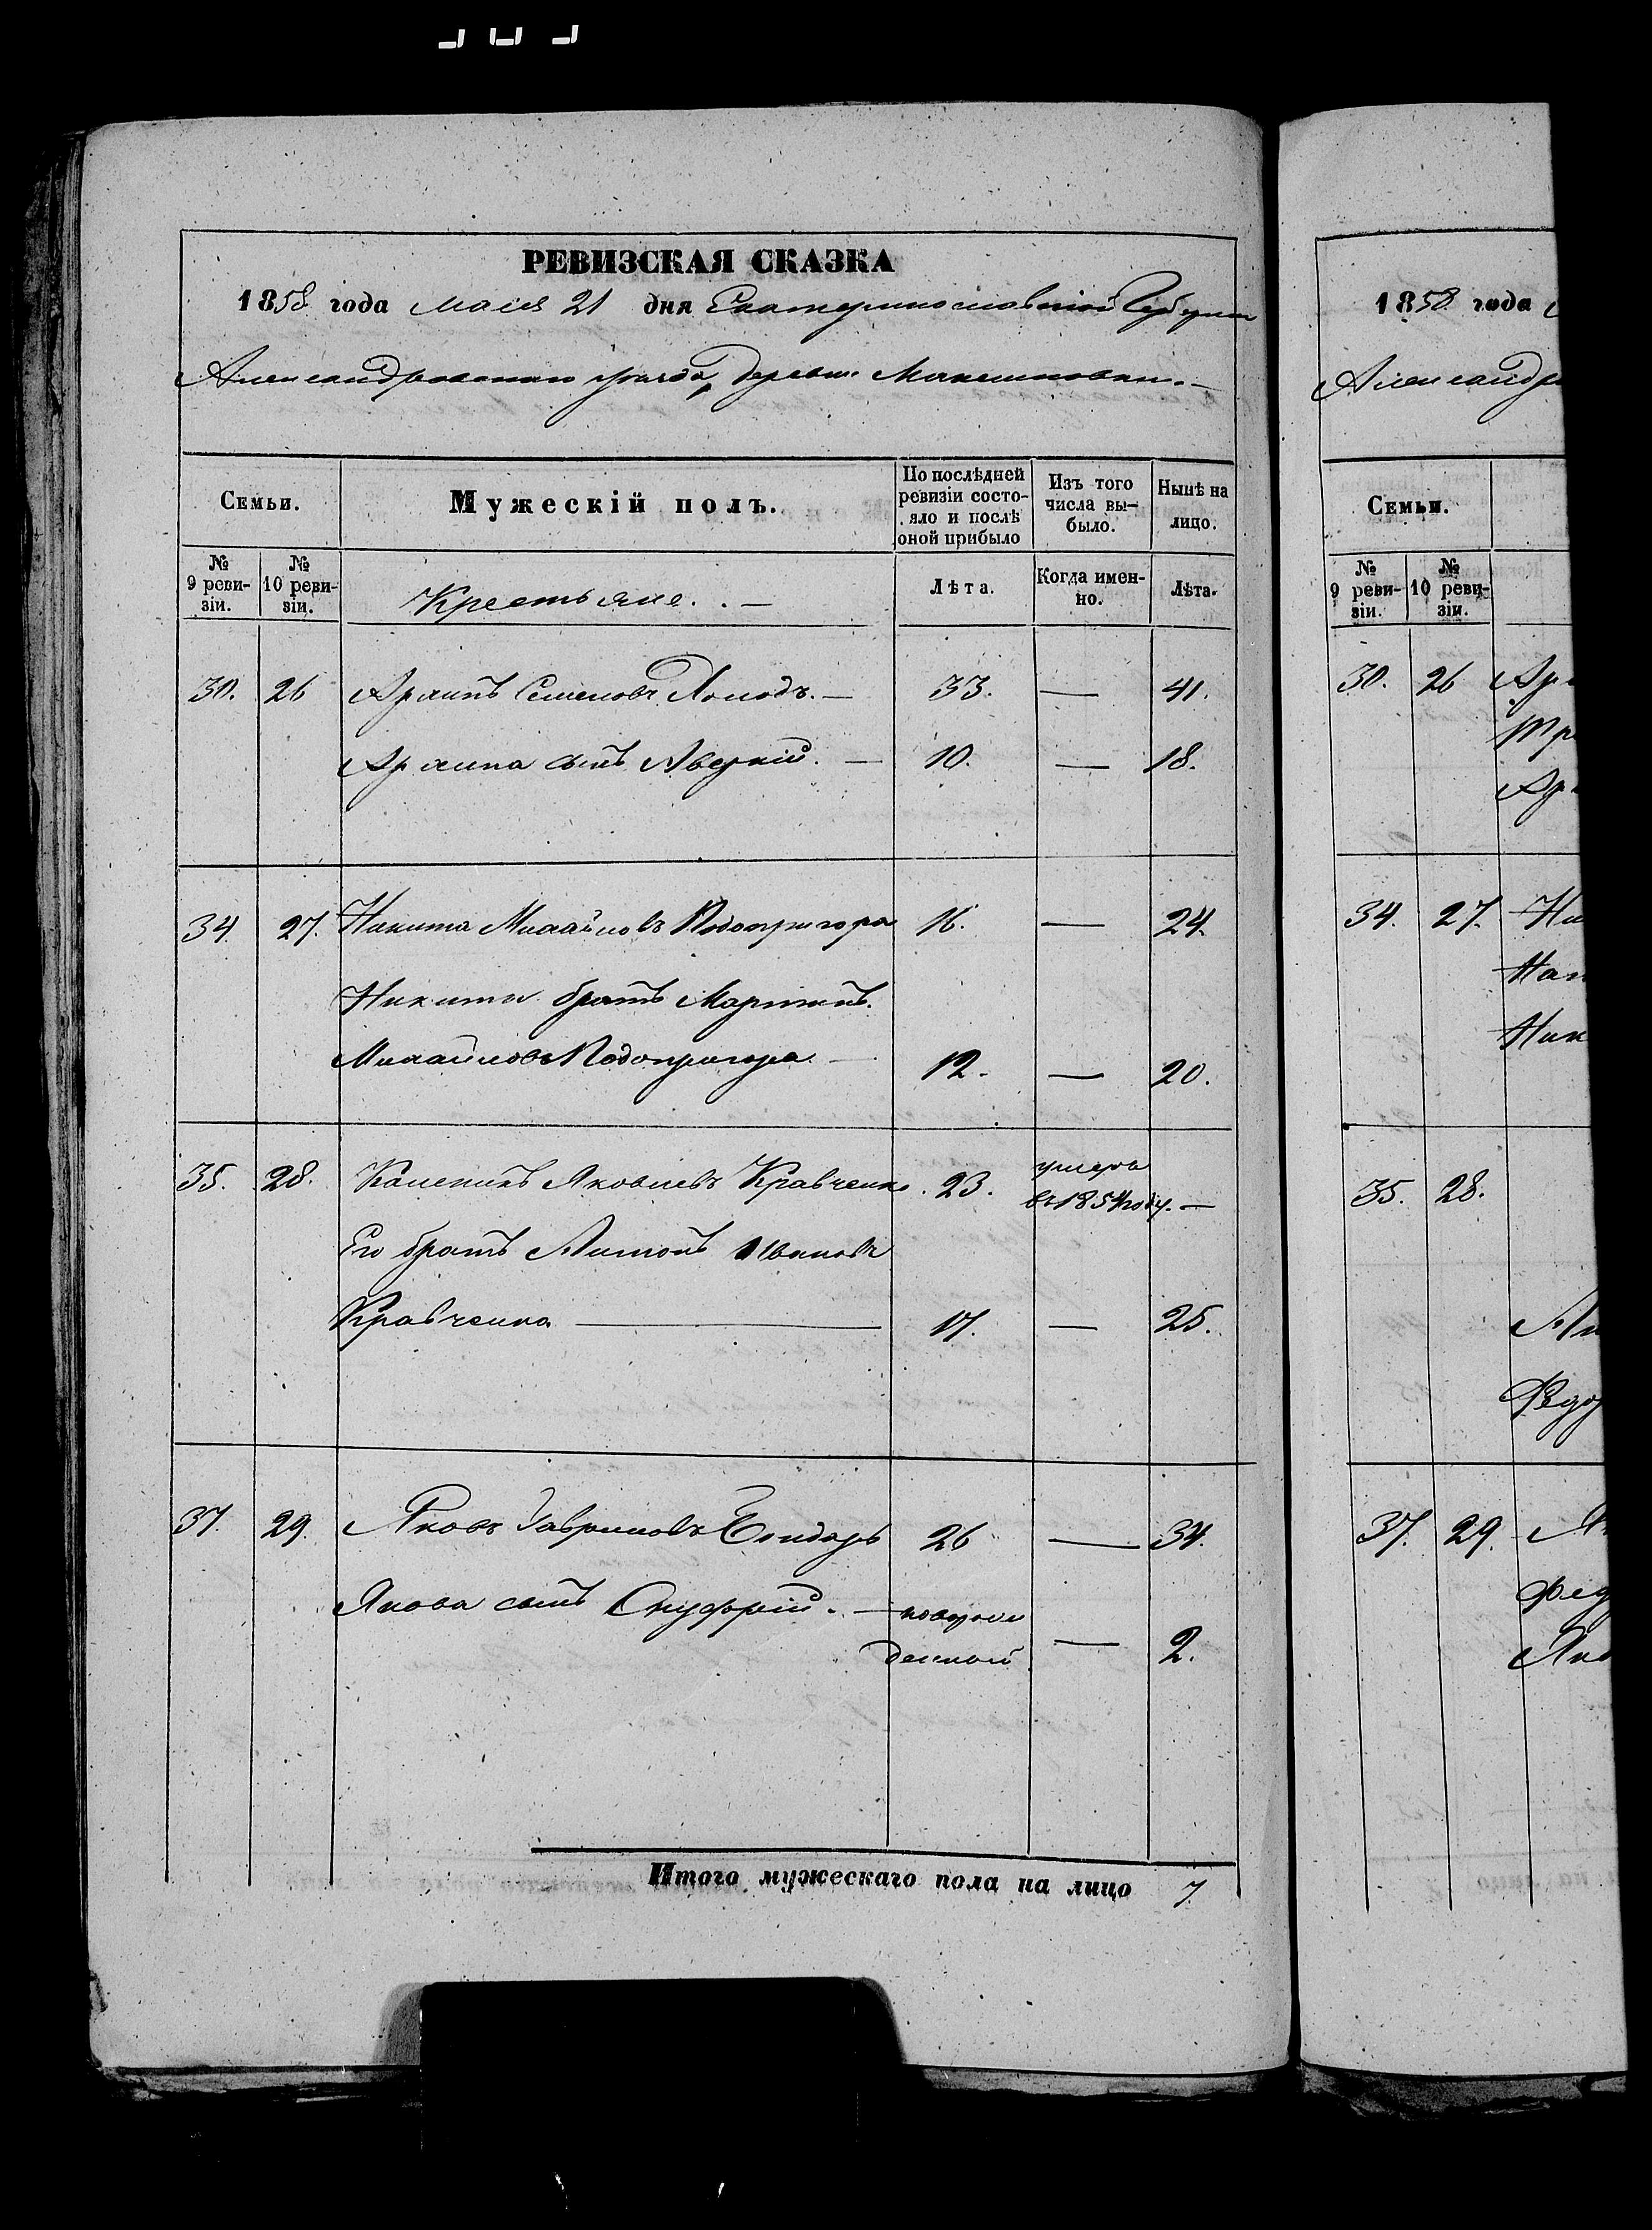 РЕВИЗСКАЯ СКАЗКА
1858 года мая 21 дня Екатеринославской Губернии
Александровского уезда, деревни Максимовки.
Семьи.
Мужескій полъ.
По послѣдней ревизіи состояло и послѣ оной прибыло
Изъ того числа выбыло.
Нынѣ на лицо.
№ 9 ревизіи.
№ 10 ревизіи.
Крестьяне.
Лѣта.
Когда именно.
Лѣта.
30. 26 Архипъ Семеновъ — 33. — 41.
Архипа сынъ Аверкій. — 10. — 18.
34. 27. Никита Михайловъ Подопригора 16. — 24.
Никиты братъ Мартинъ
Михайловъ Подопригора — 12. — 20.
35. 28. Яковлевъ Кравченко. 23. умеръ въ 1854 году. —
Его братъ Антонъ Ивановъ
Кравченко — 17. — 25.
37. 29. Яковъ Гавриловъ Бондарь 26 — 34.
Якова сынъ Онуфрій. — новорожденный — 2.
Итого мужескаго пола на лицо 7
1858 года
Александро
Семьи.
№ 9 ревизіи.
№ 10 ревизіи.
30. 26 Ар
Ар
34. 27. Ни
Ник
35. 28.
37. 29. Я
Фед
Яко